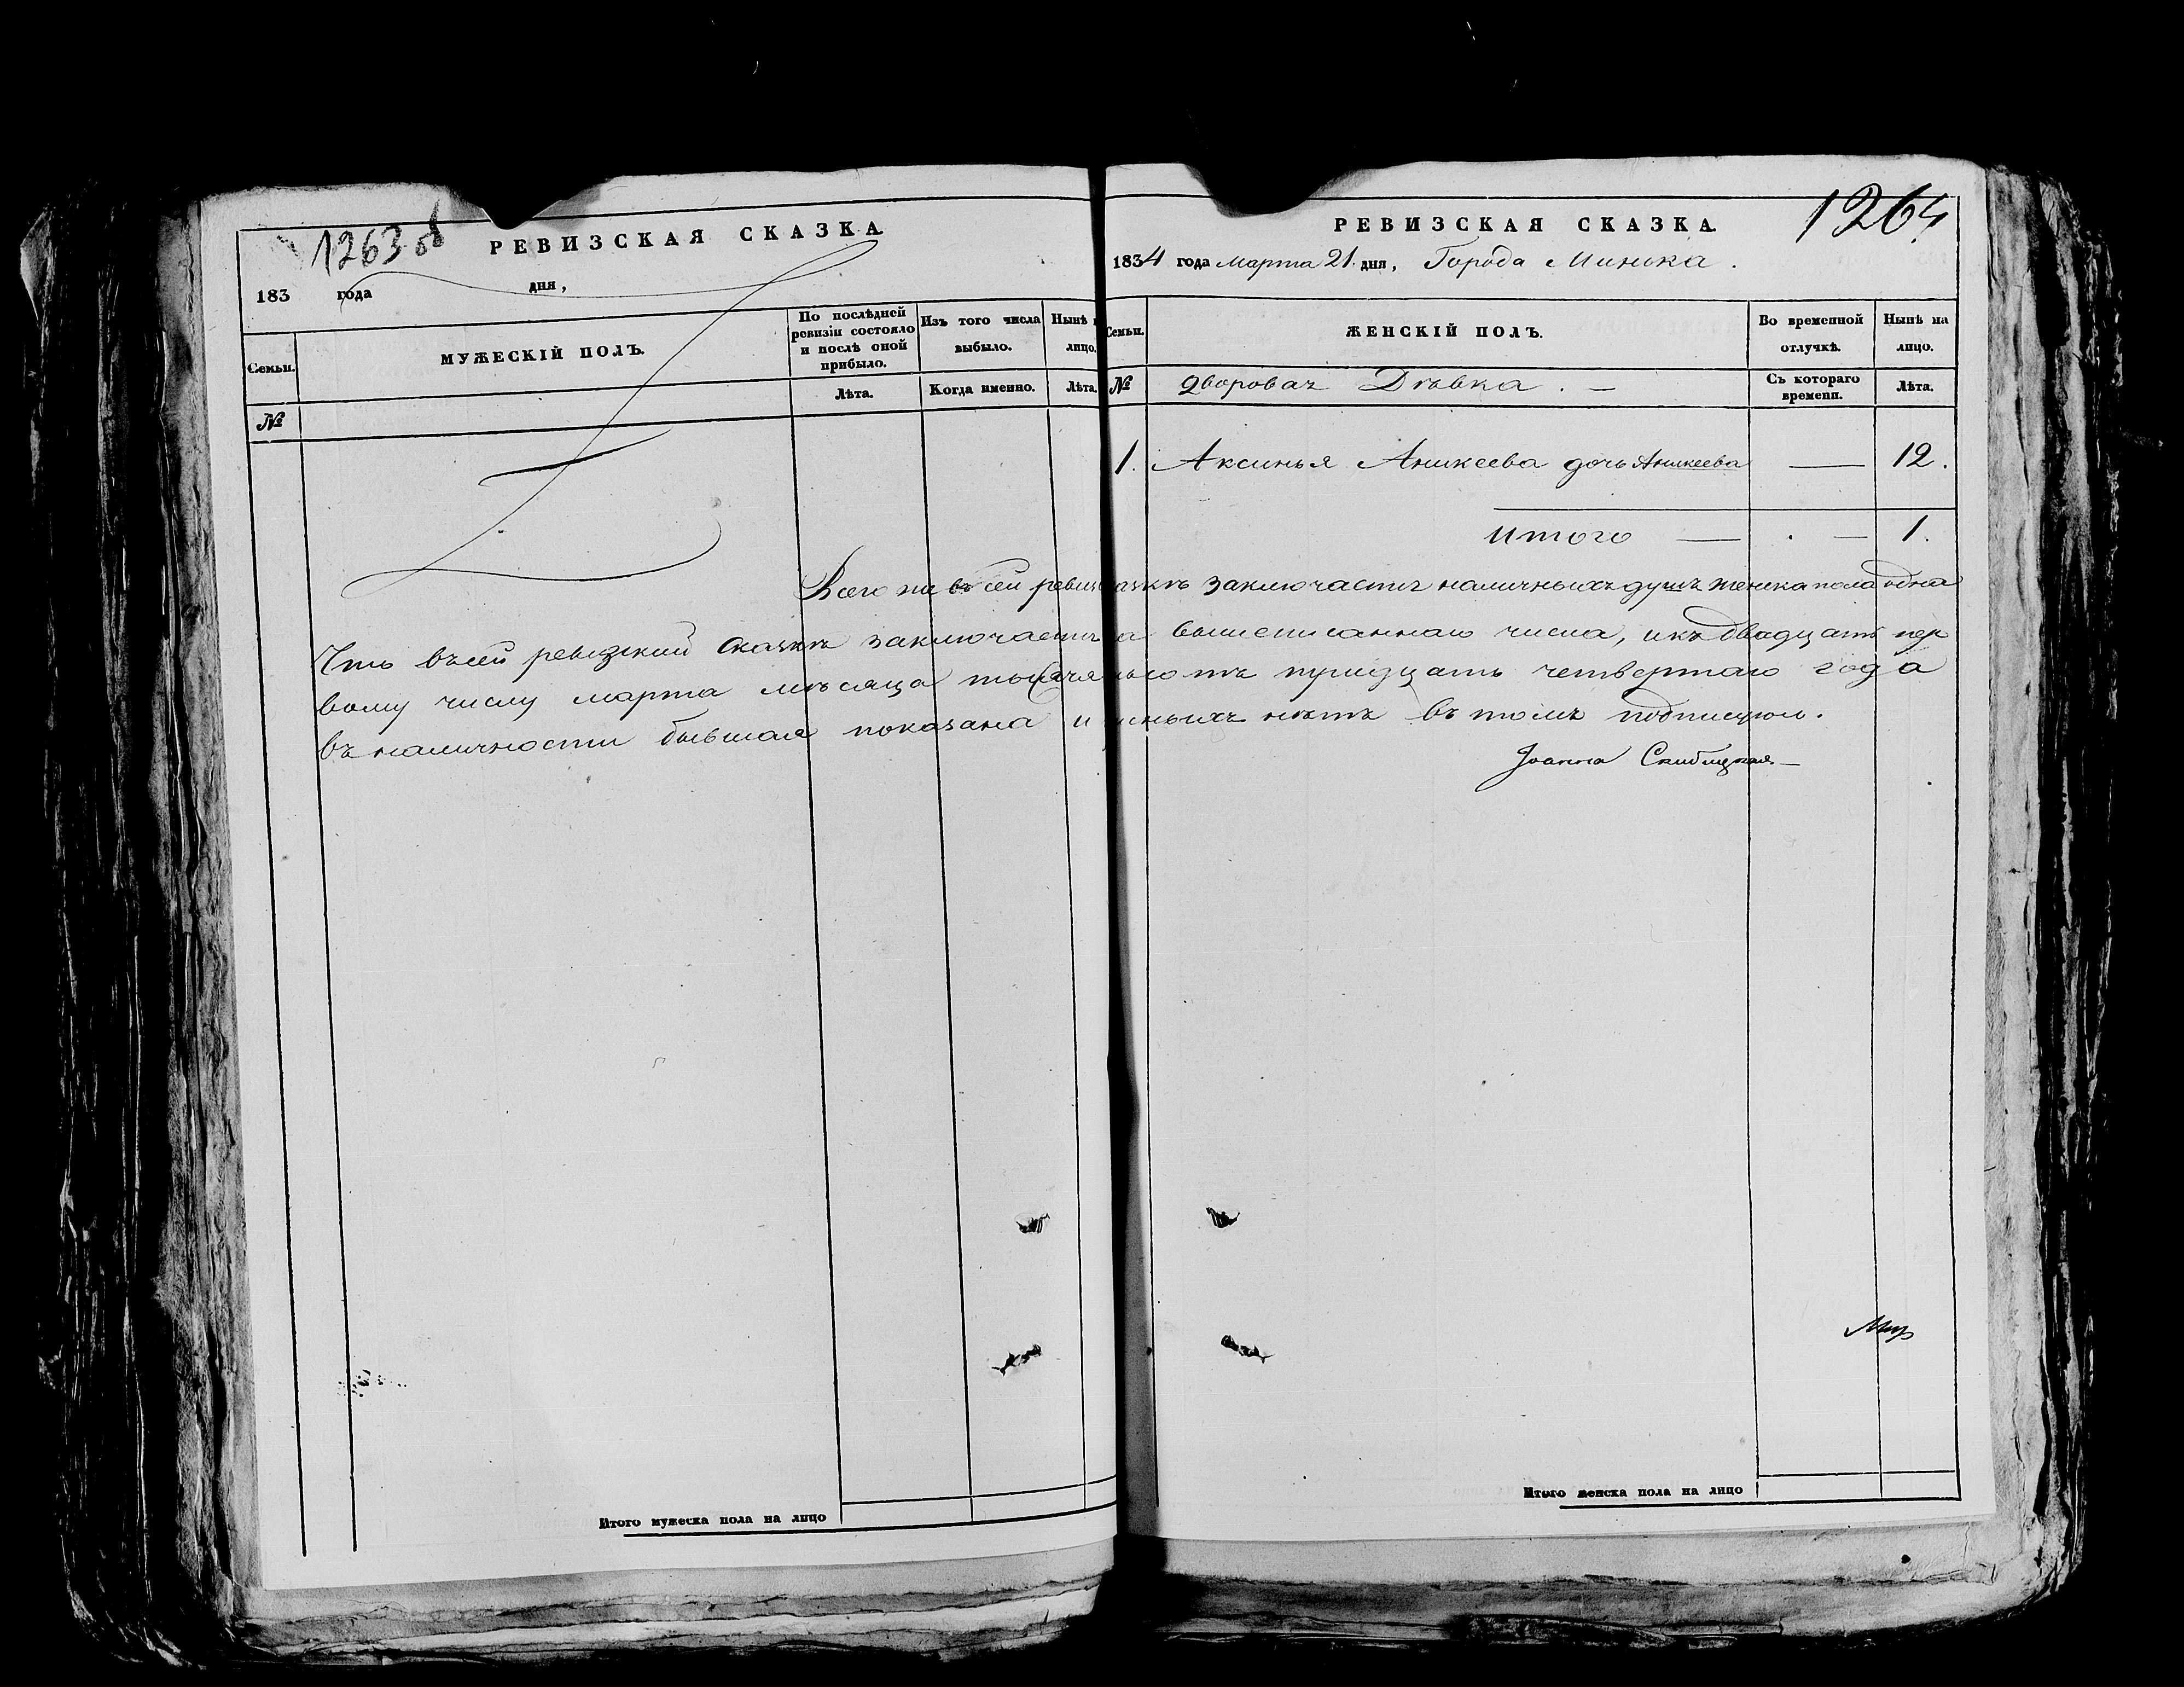 1263 об
РЕВИЗСКАЯ СКАЗКА
183 года дня,
Семьи.
МУЖЕСКІЙ ПОЛЪ.
По послѣдней ревизіи состояло и послѣ оной прибыло.
Изъ того числа выбыло.
Нынѣ
лицо.
№
Лѣта.
Когда именно.
Лѣта.
Итого мужеска пола на лицо
1264
РЕВИЗСКАЯ СКАЗКА.
1834 года Марта 21. дня, Города Минска.
Семьи.
ЖЕНСКІЙ ПОЛЪ.
Во временной отлучкѣ.
Нынѣ на лицо.
№
дворовая Дѣвка. —
Съ котораго времени.
Лѣта.
1. Аксинья Аникеева дочь Аникеева — 12.
Итого — . — 1.
Всего въ сей заключается наличныхъ душъ женска пола одна
Что въ сей ревизской сказкѣ заключается вышеписаннаго числа, и къ двадцать пер
вому числу марта мѣсяца тридцать четвертаго года
въ наличности бывшая показана и нѣтъ въ томъ подписуюсь.
Іоанна Скибицкая
Итого женска пола на лицо